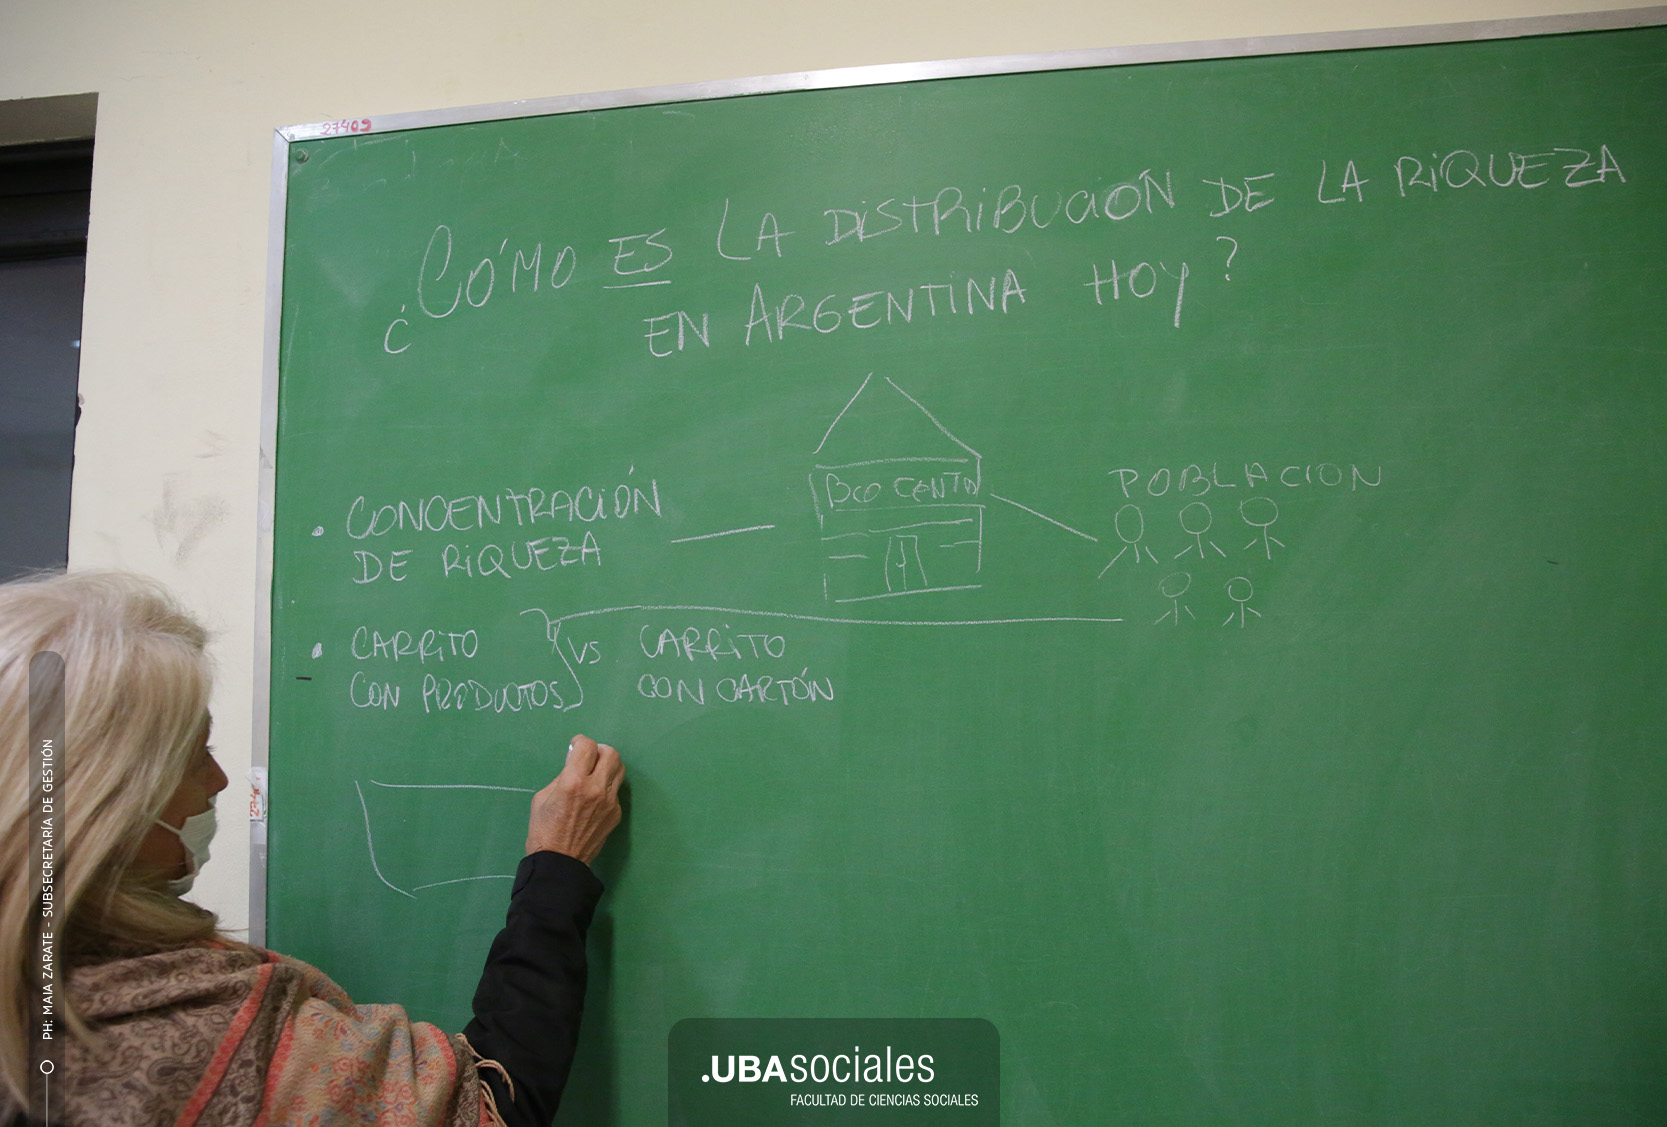 27409
¿CÓMO ES LA DISTRIBUCIÓN DE LA RIQUEZA
EN ARGENTINA HOY?
BCO CENTRAL
POBLACION
• CONCENTRACIÓN
DE RIQUEZA
• CARRITO VS CARRITO
CON PRODUCTOS CON CARTÓN
PH: MAIA ZARATE - SUBSECRETARÍA DE GESTIÓN
.UBAsociales
FACULTAD DE CIENCIAS SOCIALES